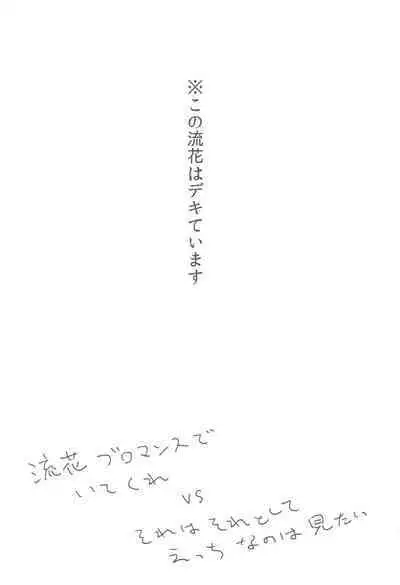 ※この流花はデキています
流花 ブロマンスで
いてくれ
vs
それはそれとして
えっち なのは 見たい